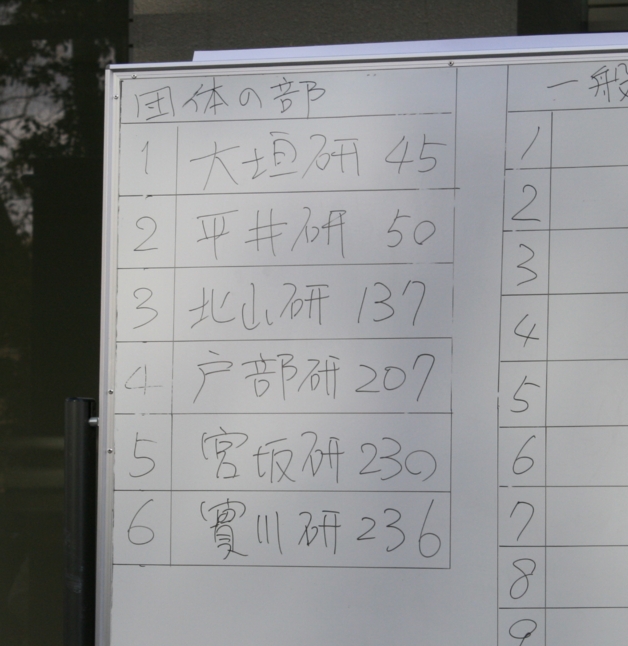 団体の部
1 大垣研 45
2 平井研 50
3 北山研 137
4 戸部研 207
5 宮坂研 230
6 寳川研 236
一般
1
2
3
4
5
6
7
8
9